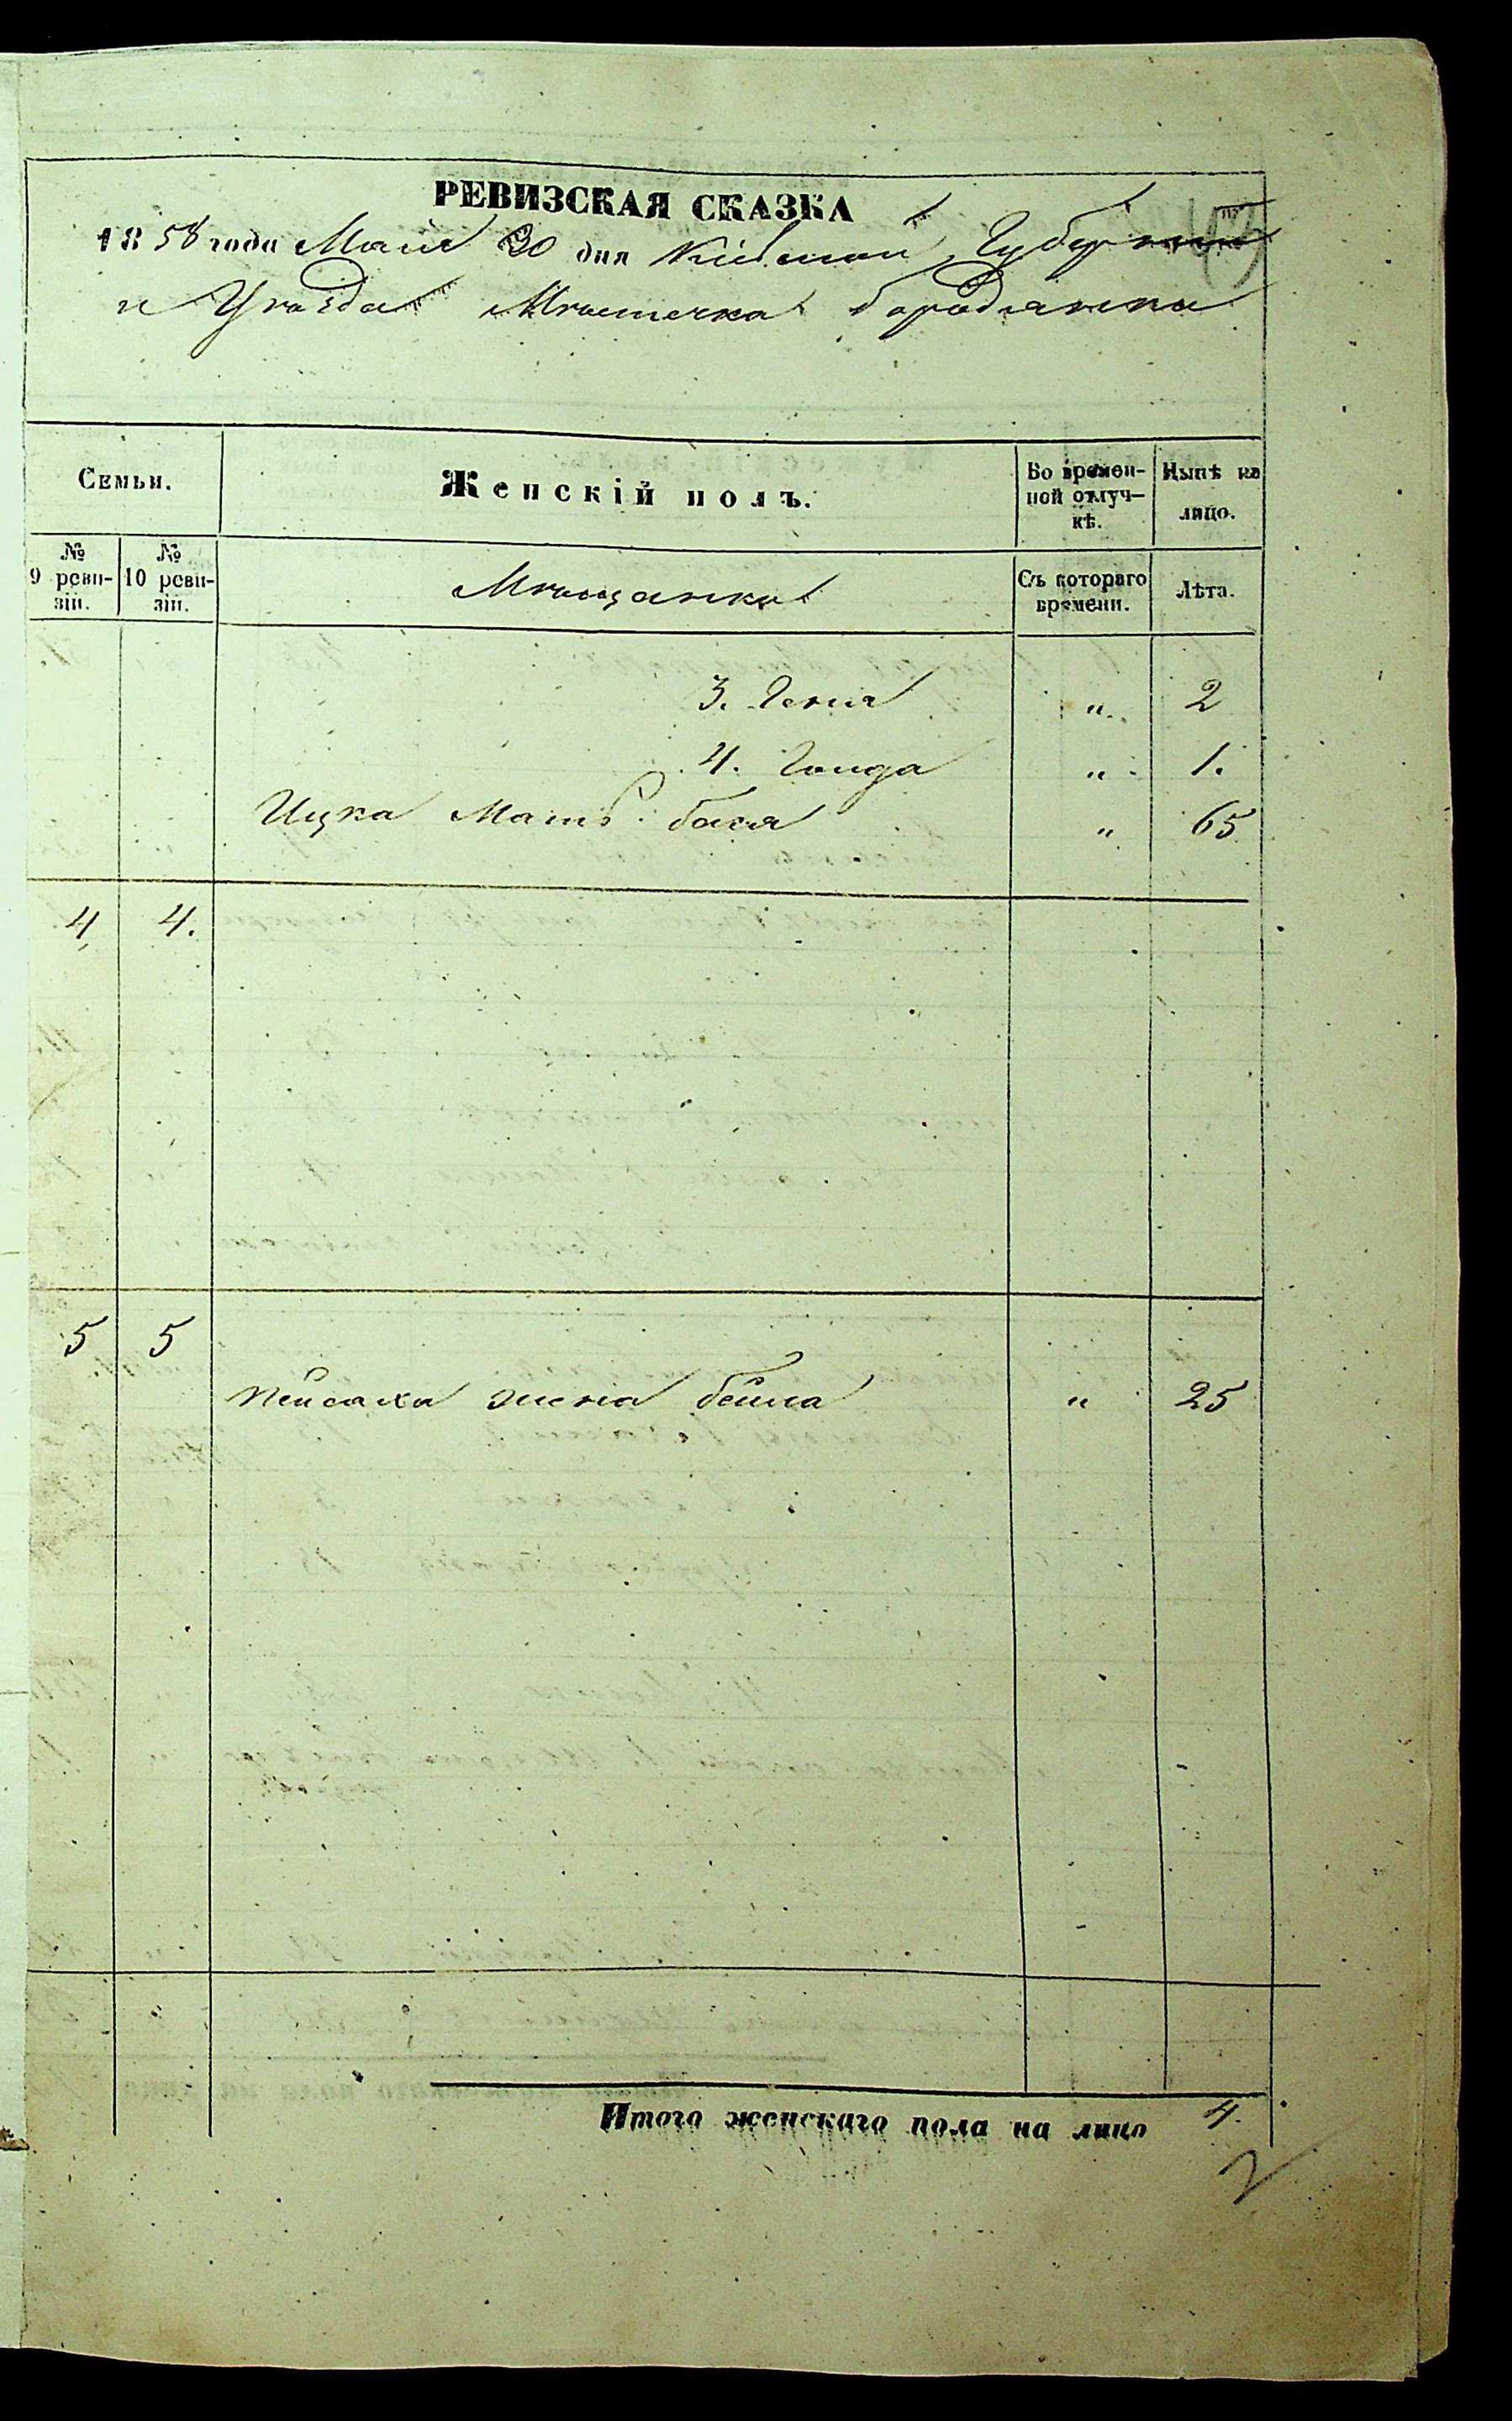 РЕВИЗСКАЯ СКАЗКА
1858 года Мая 20 дня Кіевской Губерніи
и Уѣзда Мѣстечка Бородянки
Семьи.
Женскій полъ.
Во времен-
ной отлуч-
кѣ.
Нынѣ на
лицо.
№
9 реви-
зіи.
№
10 реви-
зіи.
Мѣщанки
Съ котораго
времени.
Лѣта.
3. Геня " 2
4. Гонда " 1.
Ицка Мать Бася " 65
4 4.
5 5
Пейсаха жена Бейла " 25
Итого женскаго пола на лицо 4.